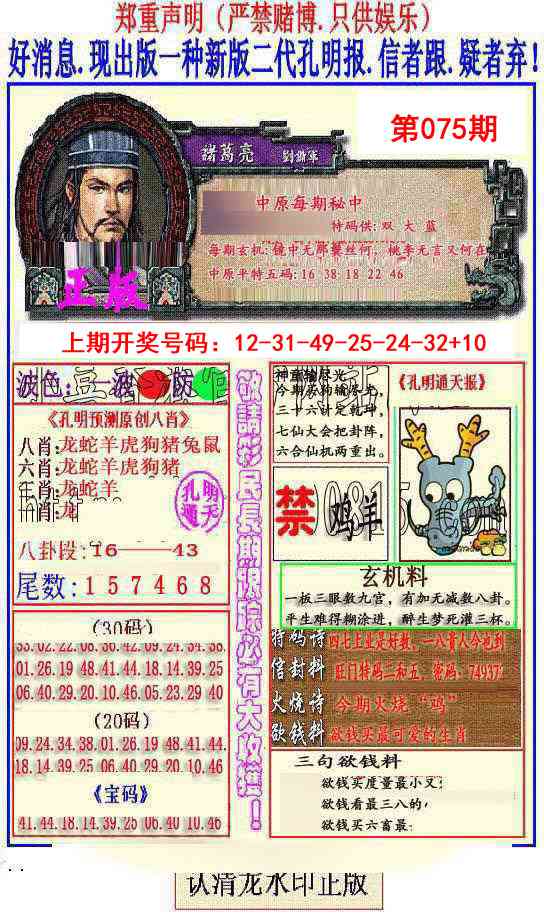 郑重声明（严禁赌博.只供娱乐）
好消息.现出版一种新版二代孔明报.信者跟.疑者弃！
第075期
諸葛亮 劉謝軍
中原每期秘中
特码供:双 大 蓝
每期玄机:镜中无那鬓丝何，桃李无言又何在
中原平特五码:16 38 18 22 46
正版
上期开奖号码：12-31-49-25-24-32+10
波色: 一波 防
《孔明预测原创八肖》
八肖:龙蛇羊虎狗猪兔鼠
六肖:龙蛇羊虎狗猪
龙蛇羊
肖:龙
孔明通天
八卦段:16——43
尾数:157468
(30码)
33.02.22.08.30.42.09.24.34.38.
01.26.19.48.41.44.18.14.39.25
06.40.29.20.10.46.05.23.29.40
(20码)
09.24.34.38.01.26.19.48.41.44.
18.14.39.25.06.40.29.20.10.46
《宝码》
41.44.18.14.39.25.06.40.10.46
敬請彩民長期跟踪必有大收獲！
神童输尽光
三十六计定乾坤，
七仙大会把卦阵，
六合仙机两重出。
《孔明通天报》
禁 鸡羊
玄机料
一板三眼数九宫，有加无减数八卦。
平生难得糊涂进，醉生梦死灌三杯。
特码诗 四七上业是好数，一八贵人今也到
信封料 旺门特码二和五，密码：749372
火烧诗 今期火烧“鸡”
欲钱料 欲钱买最可爱的生肖
三句欲钱料
欲钱买度量最小又:
欲钱看最三八的
欲钱买六畜最
认清龙水印正版